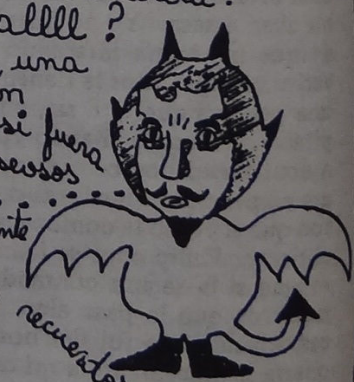 allll ?
, una
si fuera
seosos
nte
recuerdos